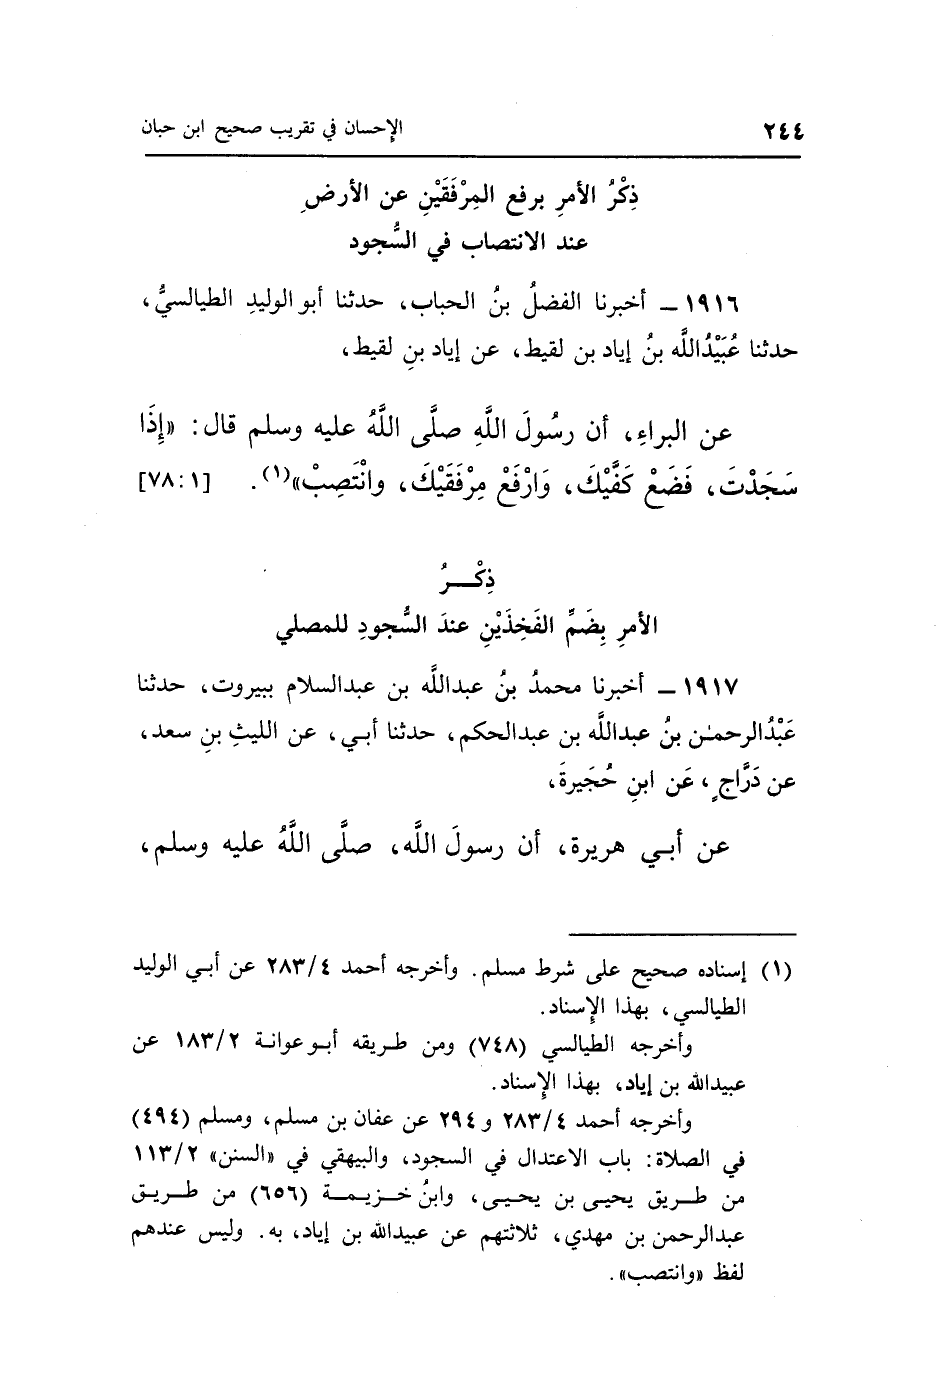 ٢٤٤ الإحسان في تقريب صحيح ابن حبان
ذِكْرُ الأمرِ برفع المِرْفَقَيْنِ عن الأرضِ
عند الانتصاب في السُّجود
١٩١٦ ــ أخبرنا الفضلُ بنُ الحباب، حدثنا أبو الوليدِ الطيالسيُّ،
حدثنا عُبَيْدُالله بنُ إياد بن لقيط، عن إياد بنِ لقيط،
عن البراءِ، أن رسُولَ اللَّهِ صلَّى اللَّهُ عليه وسلم قال: «إِذَا
سَجَدْتَ، فَضَعْ كَفَّيْكَ، وَارْفَعْ مِرْفَقَيْكَ، وانْتَصِبْ»(١). [٧٨:١]
ذِكْــرُ
الأمرِ بِضَمِّ الفَخِذَيْنِ عندَ السُّجودِ للمصلي
١٩١٧ ــ أخبرنا محمدُ بنُ عبدالله بن عبدالسلام ببيروت، حدثنا
عَبْدُالرحمٰن بنُ عبدالله بن عبدالحكم، حدثنا أبي، عن الليثِ بنِ سعد،
عن دَرَّاجٍ، عَن ابنِ حُجَيرةَ،
عن أبي هريرة، أن رسولَ الله، صلَّى اللَّهُ عليه وسلم،
(١) إسناده صحيح على شرط مسلم. وأخرجه أحمد ٢٨٣/٤ عن أبي الوليد
الطيالسي، بهذا الإسناد.
وأخرجه الطيالسي (٧٤٨) ومن طريقه أبو عوانة ١٨٣/٢ عن
عبيدالله بن إياد، بهذا الإسناد.
وأخرجه أحمد ٢٨٣/٤ و ٢٩٤ عن عفان بن مسلم، ومسلم (٤٩٤)
في الصلاة: باب الاعتدال في السجود، والبيهقي في «السنن» ١١٣/٢
من طريق يحيى بن يحيى، وابنُ خزيمة (٦٥٦) من طريق
عبدالرحمن بن مهدي، ثلاثتهم عن عبيدالله بن إياد، به. وليس عندهم
لفظ «وانتصب».